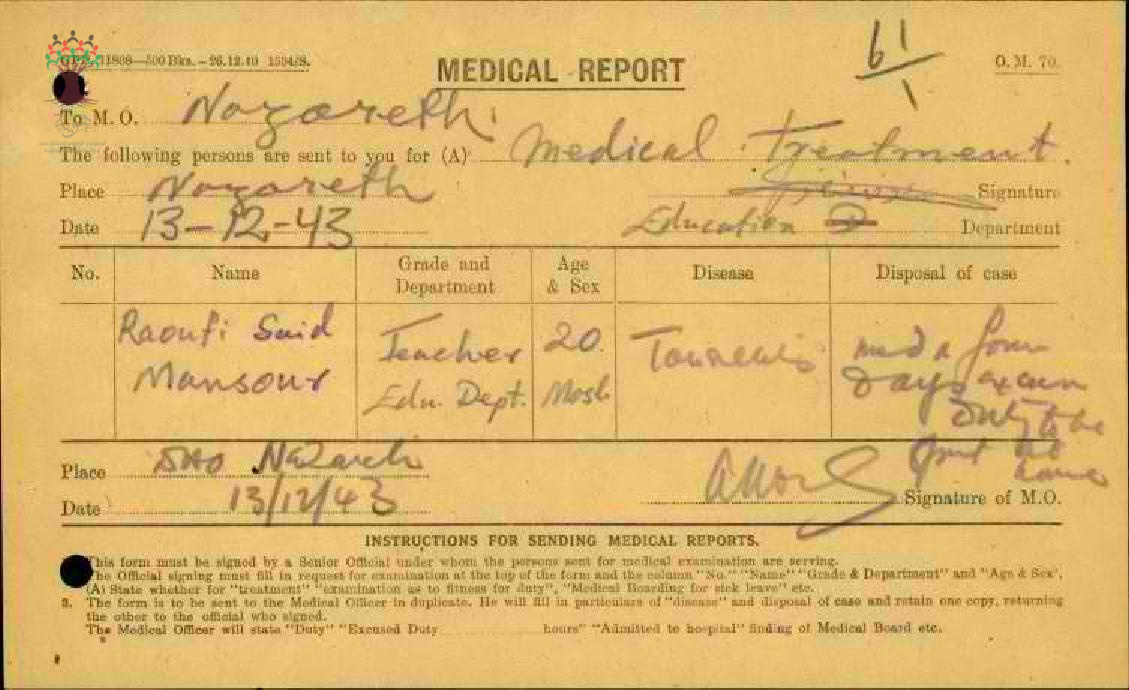 61/1
G.P.P. 11868—500 Bks.—26.12.40 1504/S.
MEDICAL REPORT
O. M. 70.
To M. O. Nazareth.
The following persons are sent to you for (A) Medical Treatment.
Place Nazareth Signature
Date 13-12-43 Education Department
No. Name Grade and Department Age & Sex Disease Disposal of case
Raoufi Said Teacher 20
Mansour Edu. Dept. Mosl
days
Place SMO Nazareth
Date 13/12/43 Signature of M.O.
INSTRUCTIONS FOR SENDING MEDICAL REPORTS.
This form must be signed by a Senior Official under whom the persons sent for medical examination are serving.
The Official signing must fill in request for examination at the top of the form and the column "No." "Name" "Grade & Department" and "Age & Sex',
(A) State whether for "treatment" "examination as to fitness for duty", "Medical Boarding for sick leave" etc.
3. The form is to be sent to the Medical Officer in duplicate. He will fill in particulars of "disease" and disposal of case and retain one copy, returning
the other to the official who signed.
The Medical Officer will state "Duty" "Excused Duty hours" "Admitted to hospital" finding of Medical Board etc.